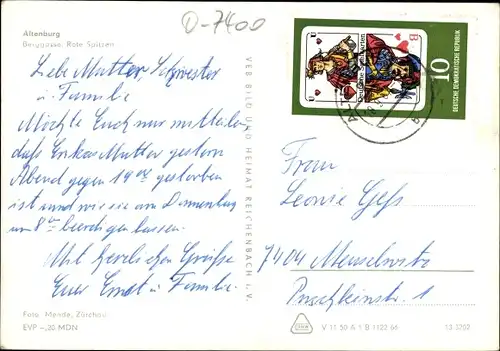 Altenburg
Berggasse, Rote Spitzen
O-7400
Liebe Mutter Schwester
u. Familie
Möchte Euch nur mitteilen
daß Erikas Mutter gestern
Abend gegen 19 00 gestorben
ist und wir sie am Donnerstag
um 8 00 beerdigen lassen.
Mit herzlichen Grüße
Euer Ernst u. Familie.
Foto: Mende, Zürchau
EVP –,20 MDN
VEB BILD UND HEIMAT REICHENBACH i. V.
10
DEUTSCHE DEMOKRATISCHE REPUBLIK
Frau
Leonie Geß
7404 Meuselwitz
Puschkinstr. 1
V 11 50 A 1 B 1122 66
13 3202